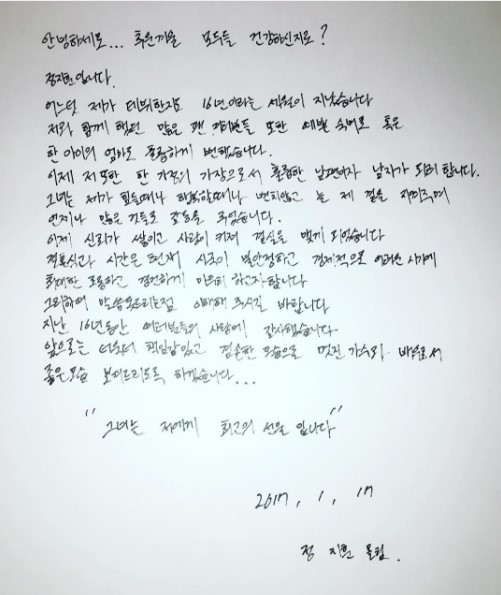 안녕하세요... 추운겨울 모두들 건강하신지요?
정지훈입니다.
어느덧 제가 데뷔한지도 16년이라는 세월이 지났습니다
저와 함께 했던 많은 팬 여러분들 또한 예쁜 숙녀로 혹은
한 아이의 엄마로 훌륭하게 변했습니다.
이제 저또한 한 가정의 가장으로서 훌륭한 남편이자 남자가 되려 합니다.
그녀는 제가 힘들때나 행복할때나 변치않고 늘 제 곁을 지켜주며
언제나 많은 것들로 감동을 주었습니다.
이제 신뢰가 쌓이고 사랑이 커져 결실을 맺게 되었습니다
결혼식과 시간은 현재 시국이 불안정하고 경제적으로 어려운 시기에
최대한 조용하고 경건하게 치르려 하고자합니다
그리하여 말씀못드리는점 이해해 주시길 바랍니다
지난 16년동안 여러분들의 사랑에 감사했습니다.
앞으로는 더욱더 책임감있고 겸손한 모습으로 멋진 가수와 배우로서
좋은모습 보여드리도록 하겠습니다...
"그녀는 저에게 최고의 선물 입니다"
2017, 1, 17
정 지훈 올림.